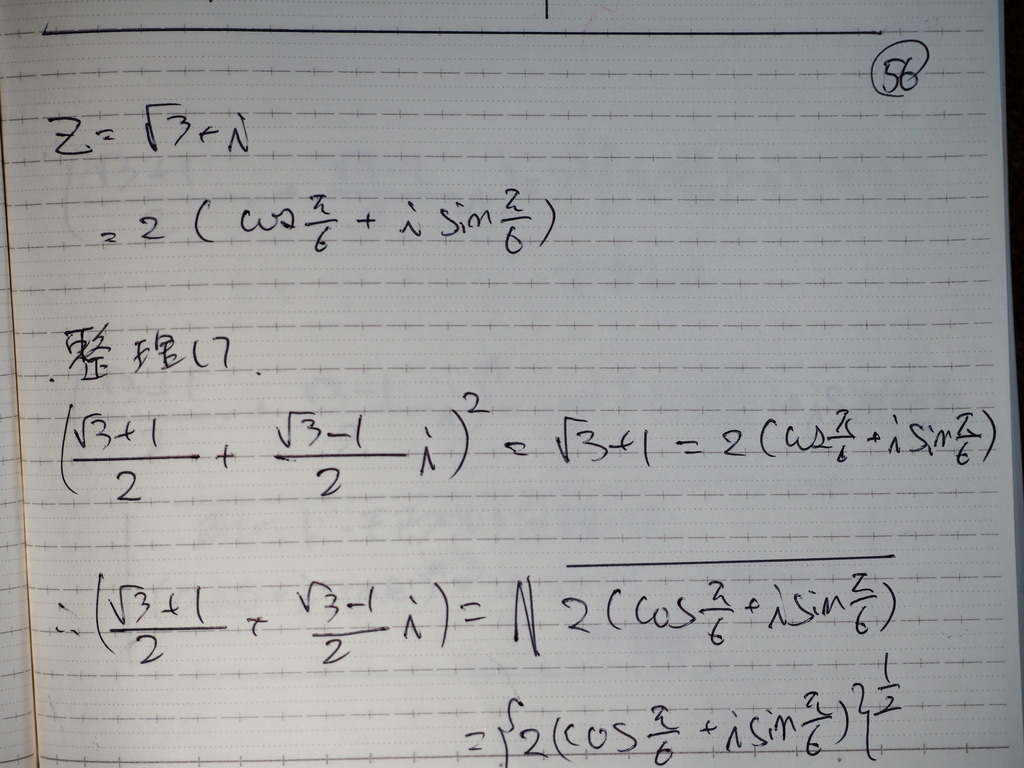 56
Z = √3 + i
= 2 ( cos π/6 + i sin π/6 )
整理して
( (√3+1)/2 + (√3-1)/2 i )² = √3+1 = 2 ( cos π/6 + i sin π/6 )
∴ ( (√3+1)/2 + (√3-1)/2 i ) = √( 2 ( cos π/6 + i sin π/6 ) )
= { 2 ( cos π/6 + i sin π/6 ) }^(1/2)